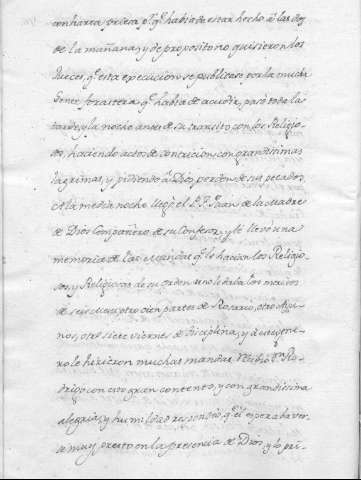 con harta priesa, pr. q. havia de estar hecho a las dos
de la mañana, y de proposito no quisieron los
Jueces, q. esta execucion se publicase por la mucha
Gente forastera q. havia de acudir, pasó toda la
tarde, y la noche antes de su transito con los Religio-
sos, haciendo actos de contricion, con grandisimas
lagrimas, y pidiendo a Dios perdon de sus pecados.
A la media noche llegó el P. F. Juan de la Madre
de Dios Compañero de su Confesor, y le llevó una
memoria de las q. le hacian los Religio-
sos, y Religiosas de su orden
otro cien partes de Rosario, otro Ayu-
nos, otro siete viernes de disciplina, y a este gene-
ro le hicieron muchas mandas. Recibió Dn. Ro-
drigo con esto gran contento, y con grandisima
alegria, y humildad respondió, q. él esperaba ver-
se muy presto en la presencia de Dios, y lo pri-